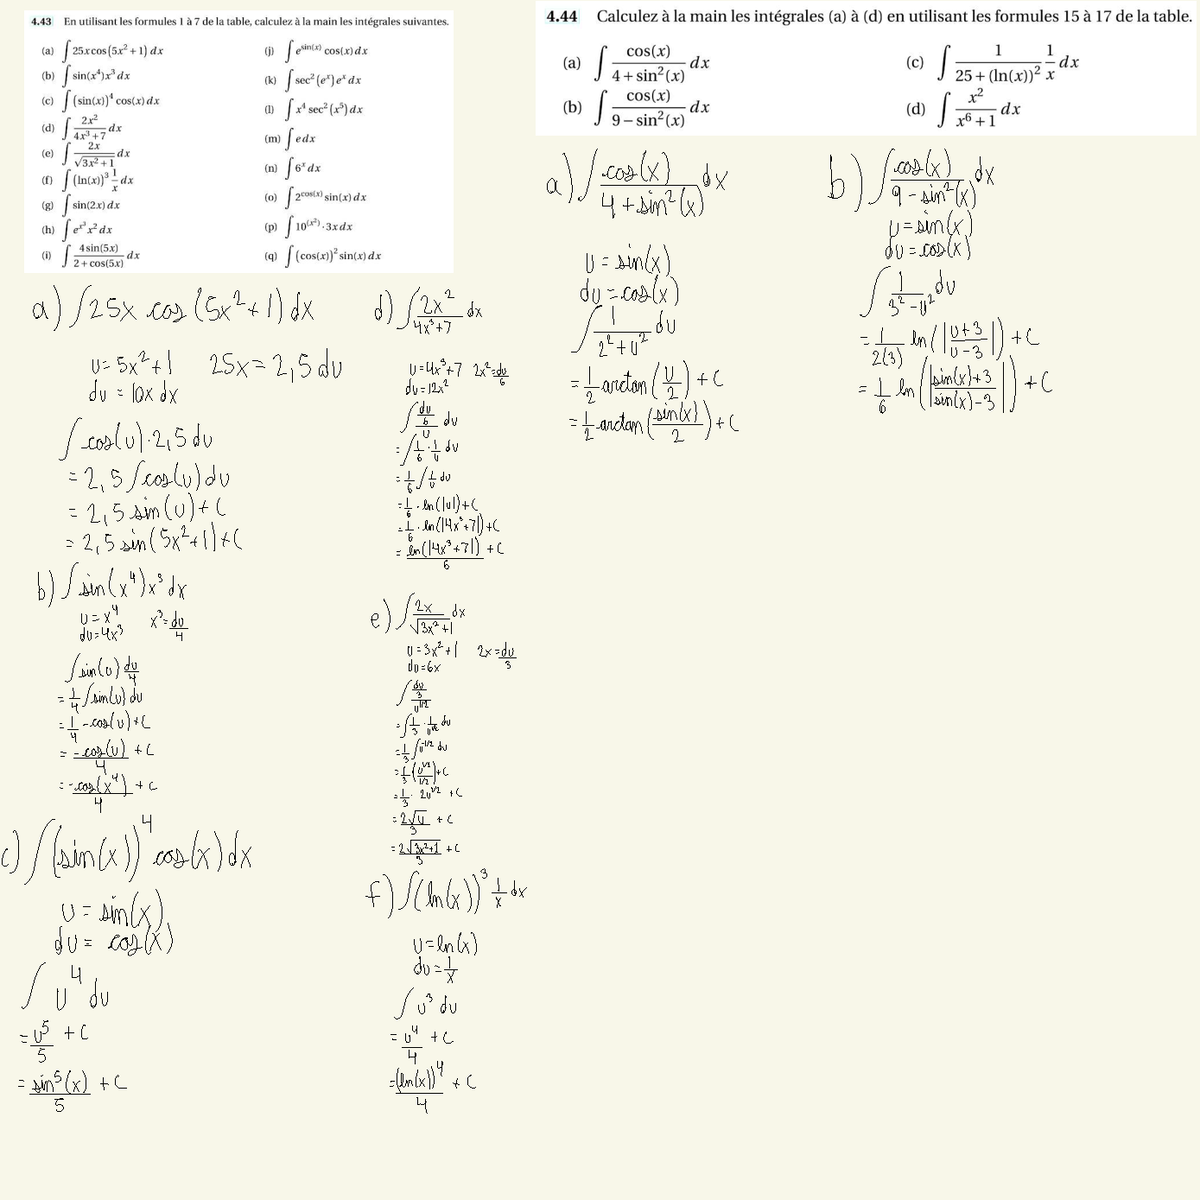 4.43 En utilisant les formules 1 à 7 de la table, calculez à la main les intégrales suivantes.
(a) ∫ 25x cos(5x² + 1) dx
(b) ∫ sin(x⁴)x³ dx
(c) ∫ (sin(x))⁴ cos(x) dx
(d) ∫ 2x²/(4x³ + 7) dx
(e) ∫ 2x/√(3x² + 1) dx
(f) ∫ (ln(x))³ 1/x dx
(g) ∫ sin(2x) dx
(h) ∫ e^(x³) x² dx
(i) ∫ 4 sin(5x)/(2 + cos(5x)) dx
(j) ∫ e^(sin(x)) cos(x) dx
(k) ∫ sec²(e^x) e^x dx
(l) ∫ x⁴ sec²(x⁵) dx
(m) ∫ e dx
(n) ∫ 6^x dx
(o) ∫ 2^(cos(x)) sin(x) dx
(p) ∫ 10^(x²) · 3x dx
(q) ∫ (cos(x))² sin(x) dx
4.44 Calculez à la main les intégrales (a) à (d) en utilisant les formules 15 à 17 de la table.
(a) ∫ cos(x)/(4 + sin²(x)) dx
(b) ∫ cos(x)/(9 − sin²(x)) dx
(c) ∫ 1/(25 + (ln(x))²) 1/x dx
(d) ∫ x²/(x⁶ + 1) dx
a) ∫ 25x cos (5x² + 1) dx
u = 5x² + 1 25x = 2,5 du
du = 10x dx
∫ cos(u) · 2,5 du
= 2,5 ∫ cos(u) du
= 2,5 sin(u) + C
= 2,5 sin(5x² + 1) + C
b) ∫ sin(x⁴) x³ dx
u = x⁴ x³ = du/4
du = 4x³
∫ sin(u) du/4
= 1/4 ∫ sin(u) du
= 1/4 - cos(u) + C
= -cos(u)/4 + C
= -cos(x⁴)/4 + C
c) ∫ (sin(x))⁴ cos(x) dx
u = sin(x)
du = cos(x)
∫ u⁴ du
= u⁵/5 + C
= sin⁵(x)/5 + C
d) ∫ 2x²/(4x³+7) dx
u = 4x³+7 2x² = du/6
du = 12x²
∫ (du/6)/u du
= ∫ 1/6 · 1/u du
= 1/6 ∫ 1/u du
= 1/6 · ln(|u|) + C
= 1/6 · ln(|4x³+7|) + C
= ln(|4x³+7|)/6 + C
e) ∫ 2x/√(3x²+1) dx
u = 3x²+1 2x = du/3
du = 6x
∫ (du/3)/u^(1/2)
= ∫ 1/3 · 1/u^(1/2) du
= 1/3 ∫ u^(-1/2) du
= 1/3 (u^(1/2)/(1/2)) + C
= 1/3 · 2u^(1/2) + C
= 2√u/3 + C
= 2√(3x²+1)/3 + C
f) ∫ (ln(x))³ 1/x dx
u = ln(x)
du = 1/x
∫ u³ du
= u⁴/4 + C
= (ln(x))⁴/4 + C
a) ∫ cos(x)/(4 + sin²(x)) dx
u = sin(x)
du = cos(x)
∫ 1/(2² + u²) du
= 1/2 arctan (u/2) + C
= 1/2 arctan (sin(x)/2) + C
b) ∫ cos(x)/(9 - sin²(x)) dx
u = sin(x)
du = cos(x)
∫ 1/(3² - u²) du
= 1/2(3) ln (|u+3/u-3|) + C
= 1/6 ln (|sin(x)+3/sin(x)-3|) + C